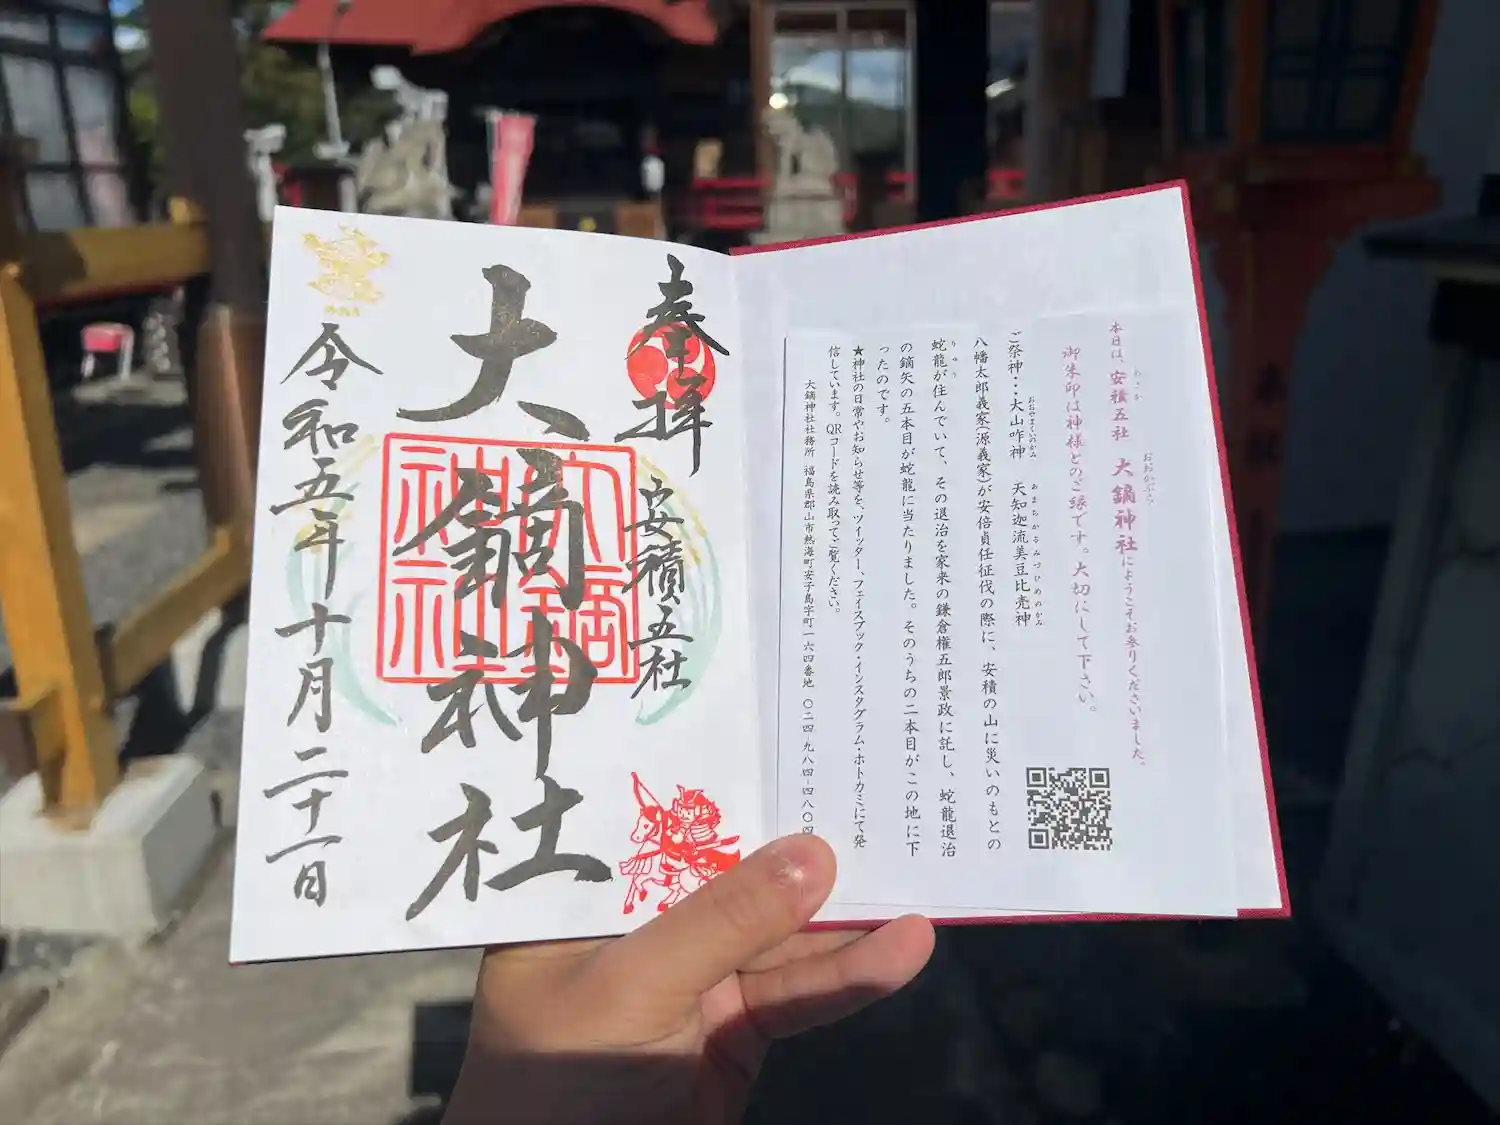 本日は、安積五社 大鏑神社にようこそお参りくださいました。
あさか おおかぶら
御朱印は神様とのご縁です。大切にして下さい。
ご祭神…大山咋神 天知迦流美豆比売神
おおやまくいのかみ あまちかるみづひめのかみ
八幡太郎義家(源義家)が安倍貞任征伐の際に、安積の山に災いのもとの
蛇龍が住んでいて、その退治を家来の鎌倉権五郎景政に託し、蛇龍退治
りゅう
の鏑矢の五本目が蛇龍に当たりました。そのうちの二本目がこの地に下
ったのです。
★神社の日常やお知らせ等を、ツイッター、フェイスブック・インスタグラム・ホトカミにて発
信しています。QRコードを読み取ってご覧ください。
大鏑神社社務所 福島県郡山市熱海町安子島字町一六四番地 〇二四-九八四-四八〇四
奉拝
安積五社
大鏑神社
大鏑
神社
令和五年十月二十一日